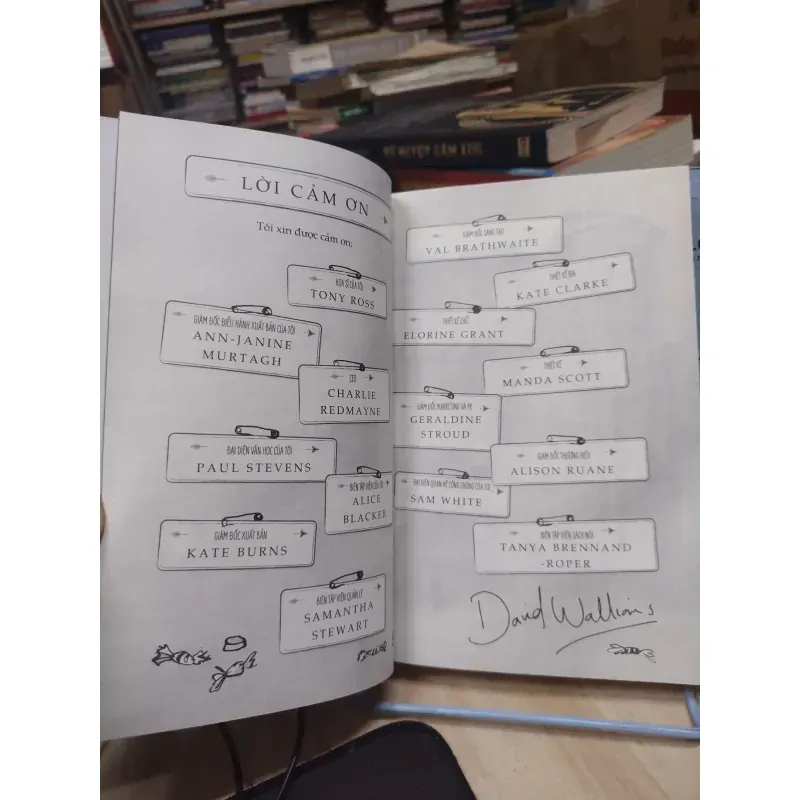 LỜI CẢM ƠN
Tôi xin được cảm ơn:
HỌA SĨ CỦA TÔI
TONY ROSS
GIÁM ĐỐC ĐIỀU HÀNH XUẤT BẢN CỦA TÔI
ANN-JANINE
MURTAGH
CEO
CHARLIE
REDMAYNE
ĐẠI DIỆN VĂN HỌC CỦA TÔI
PAUL STEVENS
BIÊN TẬP VIÊN CỦA TÔI
ALICE
BLACKER
GIÁM ĐỐC XUẤT BẢN
KATE BURNS
BIÊN TẬP VIÊN QUẢN LÝ
SAMANTHA
STEWART
GIÁM ĐỐC SÁNG TẠO
VAL BRATHWAITE
THIẾT KẾ BÌA
KATE CLARKE
THIẾT KẾ CHỮ
ELORINE GRANT
THIẾT KẾ
MANDA SCOTT
GIÁM ĐỐC MARKETING VÀ PR
GERALDINE
STROUD
GIÁM ĐỐC THƯƠNG HIỆU
ALISON RUANE
ĐẠI DIỆN QUAN HỆ CÔNG CHÚNG CỦA TÔI
SAM WHITE
BIÊN TẬP VIÊN SÁCH NÓI
TANYA BRENNAND
-ROPER
David Walliams